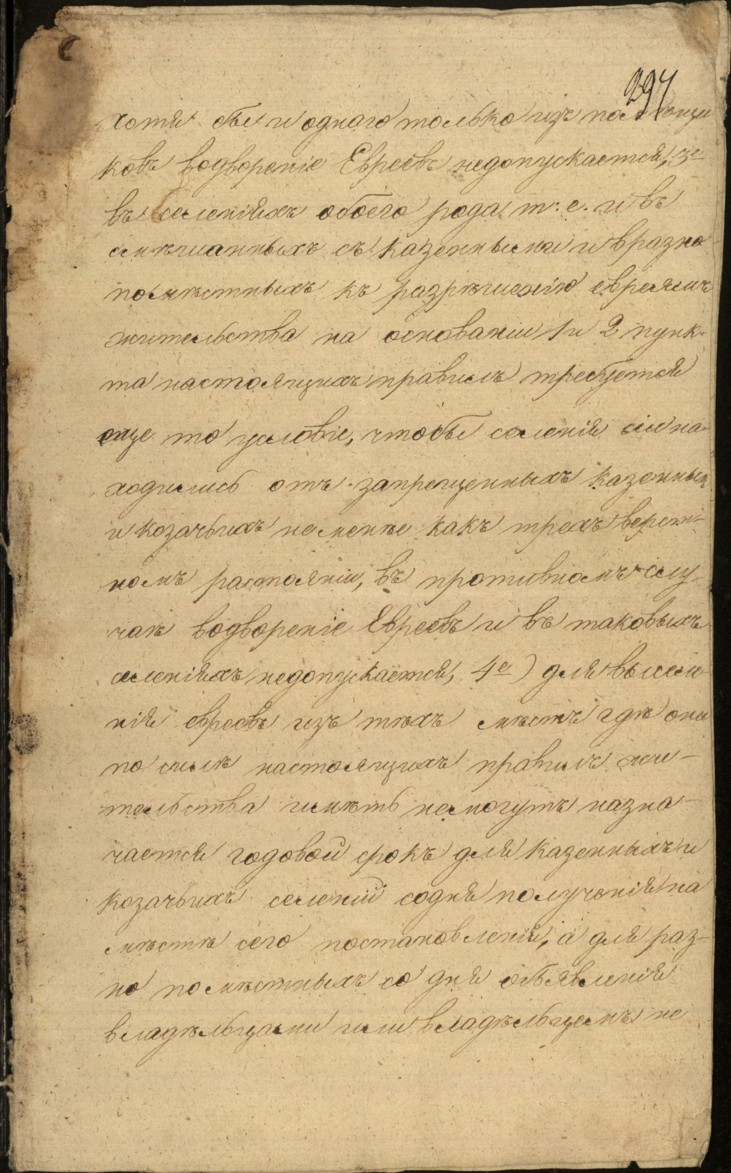 297
хотя бы и одного только изъ помѣщи
ковъ водвореніе Евреевъ недопускается, 3е
въ селеніяхъ обоего рода т. е. и въ
смѣшанныхъ съ казенными и вразно
помѣстныхъ къ разрѣшенію евреямъ
жительства на основаніи 1 и 2 пунк-
та настоящихъ правилъ требуется
еще то условіе, чтобы селенія сіи на-
ходились отъ запрещенныхъ казенныхъ
и козачьихъ неменѣе какъ трехъ верст-
номъ растояніи, въ противномъ слу-
чаѣ водвореніе Евреевъ и въ таковыхъ
селеніяхъ недопускается, 4е) для выселе-
нія евреевъ изъ тѣхъ мѣстъ гдѣ они
по силѣ настоящихъ правилъ жи-
тельства имѣть немогутъ назна-
чается годовой срокъ для казенныхъ и
козачьихъ селеній содня полученія на
мѣстѣ сего постановленія, а для раз-
но помѣстныхъ со дня объявленія
владѣльцами или владѣльцемъ не